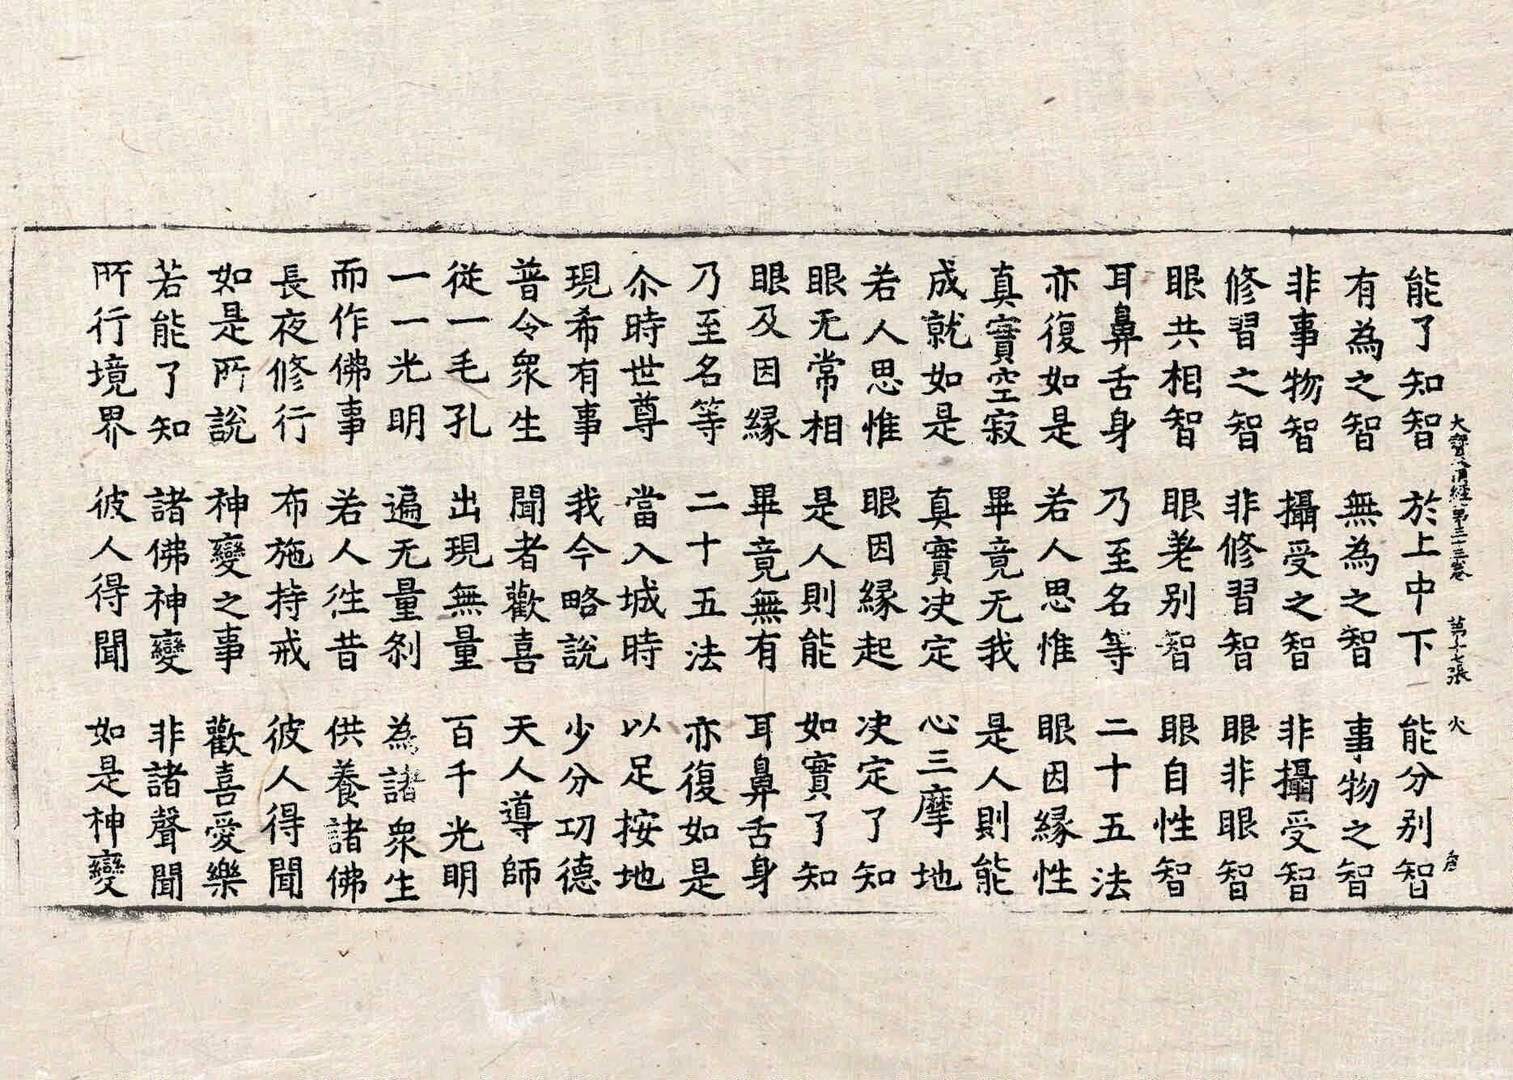 大寶積經第三十三卷 第十七張 火
能了知智 於上中下 能分別智
有為之智 無為之智 事物之智
非事物智 攝受之智 非攝受智
修習之智 非修習智 眼非眼智
眼共相智 眼差別智 眼自性智
耳鼻舌身 乃至名等 二十五法
亦復如是 若人思惟 眼因緣性
真實空寂 畢竟无我 是人則能
成就如是 真實决定 心三摩地
若人思惟 眼因緣起 决定了知
眼无常相 是人則能 如實了知
眼及因緣 畢竟無有 耳鼻舌身
乃至名等 二十五法 亦復如是
尒時世尊 當入城時 以足按地
現希有事 我今略說 少分功德
普令衆生 聞者歡喜 天人導師
從一毛孔 出現無量 百千光明
一一光明 遍无量刹 為諸衆生
而作佛事 若人往昔 供養諸佛
長夜修行 布施持戒 彼人得聞
如是所說 神變之事 歡喜愛樂
若能了知 諸佛神變 非諸聲聞
所行境界 彼人得聞 如是神變